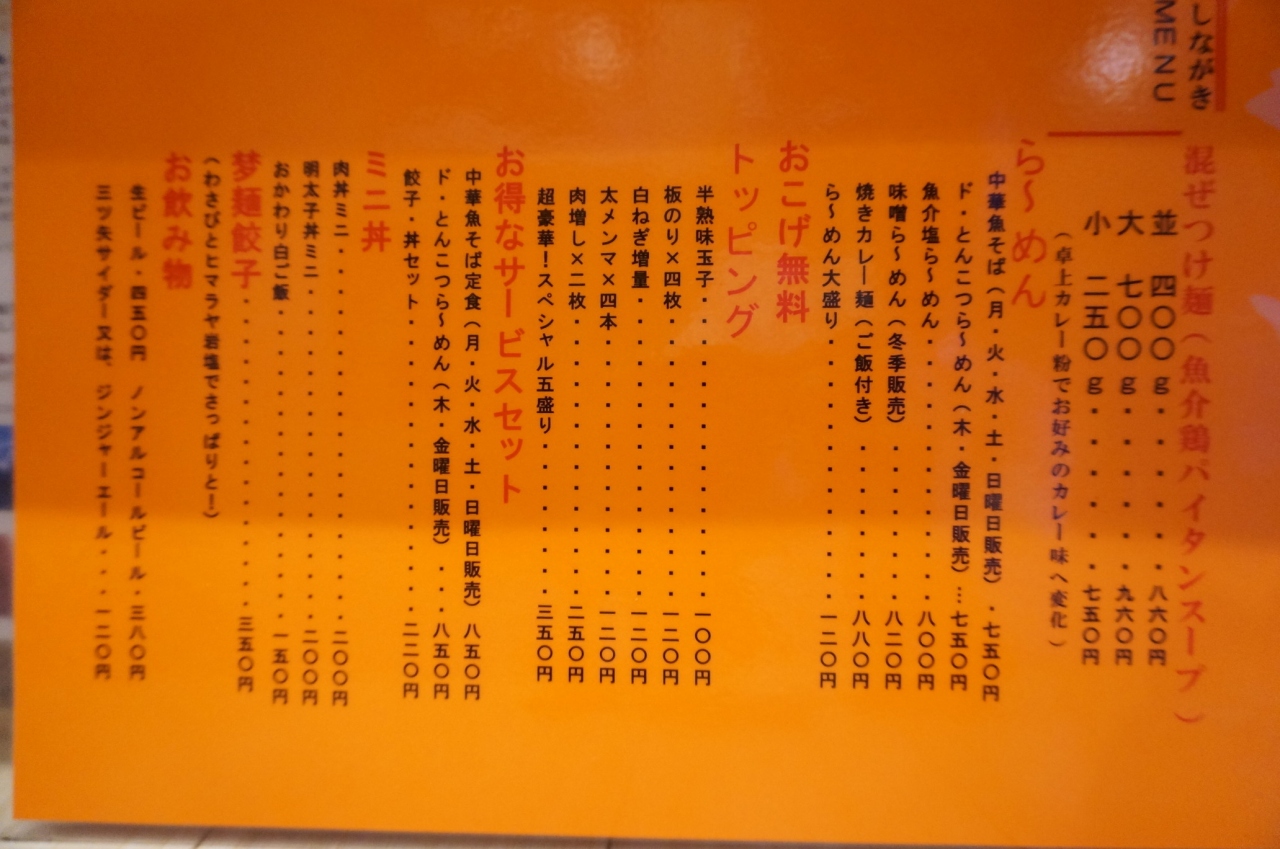 しながき
MENU
混ぜつけ麺（魚介鶏パイタンスープ）
並　四〇〇ｇ・・・・・八六〇円
大　七〇〇ｇ・・・・・九六〇円
小　二五〇ｇ・・・・・七五〇円
（卓上カレー粉でお好みのカレー味へ変化）
ら～めん
中華魚そば（月・火・水・土・日曜日販売）・七五〇円
ド・とんこつら～めん（木・金曜日販売）…七五〇円
魚介塩ら～めん・・・・・・・・・・八〇〇円
味噌ら～めん（冬季販売）・・・・・・八二〇円
焼きカレー麺（ご飯付き）・・・・・・八八〇円
ら～めん大盛り・・・・・・・・・・一二〇円
おこげ無料
トッピング
半熟味玉子・・・・・・・・・・・一〇〇円
板のり×四枚・・・・・・・・・・一二〇円
白ねぎ増量・・・・・・・・・・・一二〇円
太メンマ×四本・・・・・・・・・一二〇円
肉増し×二枚・・・・・・・・・・二五〇円
超豪華！スペシャル五盛り・・・・・・三五〇円
お得なサービスセット
中華魚そば定食（月・火・水・土・日曜日販売）八五〇円
ド・とんこつら～めん（木・金曜日販売）・・・八五〇円
餃子・丼セット・・・・・・・・・・・二二〇円
ミニ丼
肉丼ミニ・・・・・・・・・・・・・二〇〇円
明太子丼ミニ・・・・・・・・・・・・二〇〇円
おかわり白ご飯・・・・・・・・・・・一五〇円
梦麺餃子・・・・・・・・・・・三五〇円
（わさびとヒマラヤ岩塩でさっぱりと！）
お飲み物
生ビール・四五〇円　ノンアルコールビール・三八〇円
三ツ矢サイダー又は、ジンジャーエール・・・一二〇円